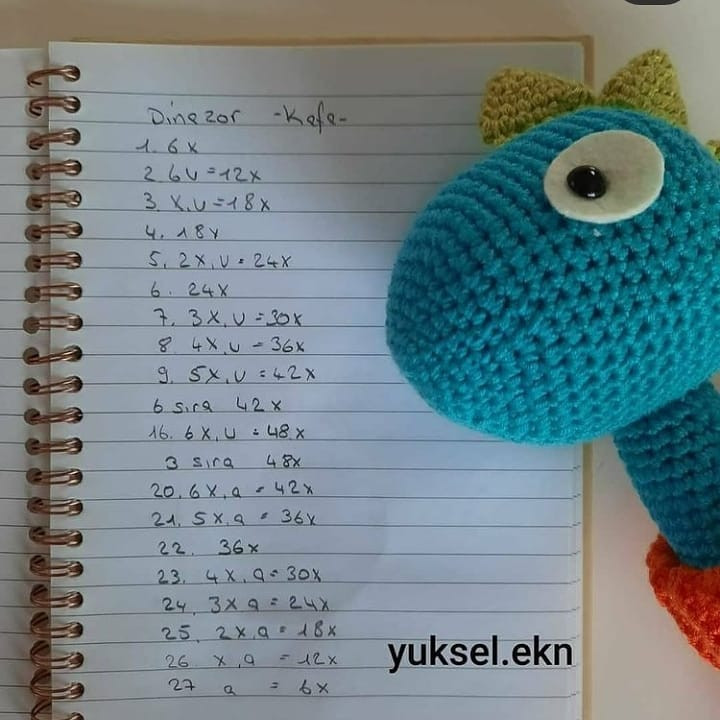 Dinazor -Kafa-
1. 6x
2 6v = 12x
3. x,v = 18x
4. 18x
5. 2x,v = 24x
6. 24x
7. 3x,v = 30x
8 4x,v = 36x
9. 5x,v = 42x
6 sıra 42x
16. 6x,v = 48x
3 sıra 48x
20. 6x,a = 42x
21. 5x,a = 36x
22. 36x
23. 4x,a = 30x
24. 3x a = 24x
25. 2x,a = 18x
26 x,a = 12x
27 a = 6x
yuksel.ekn